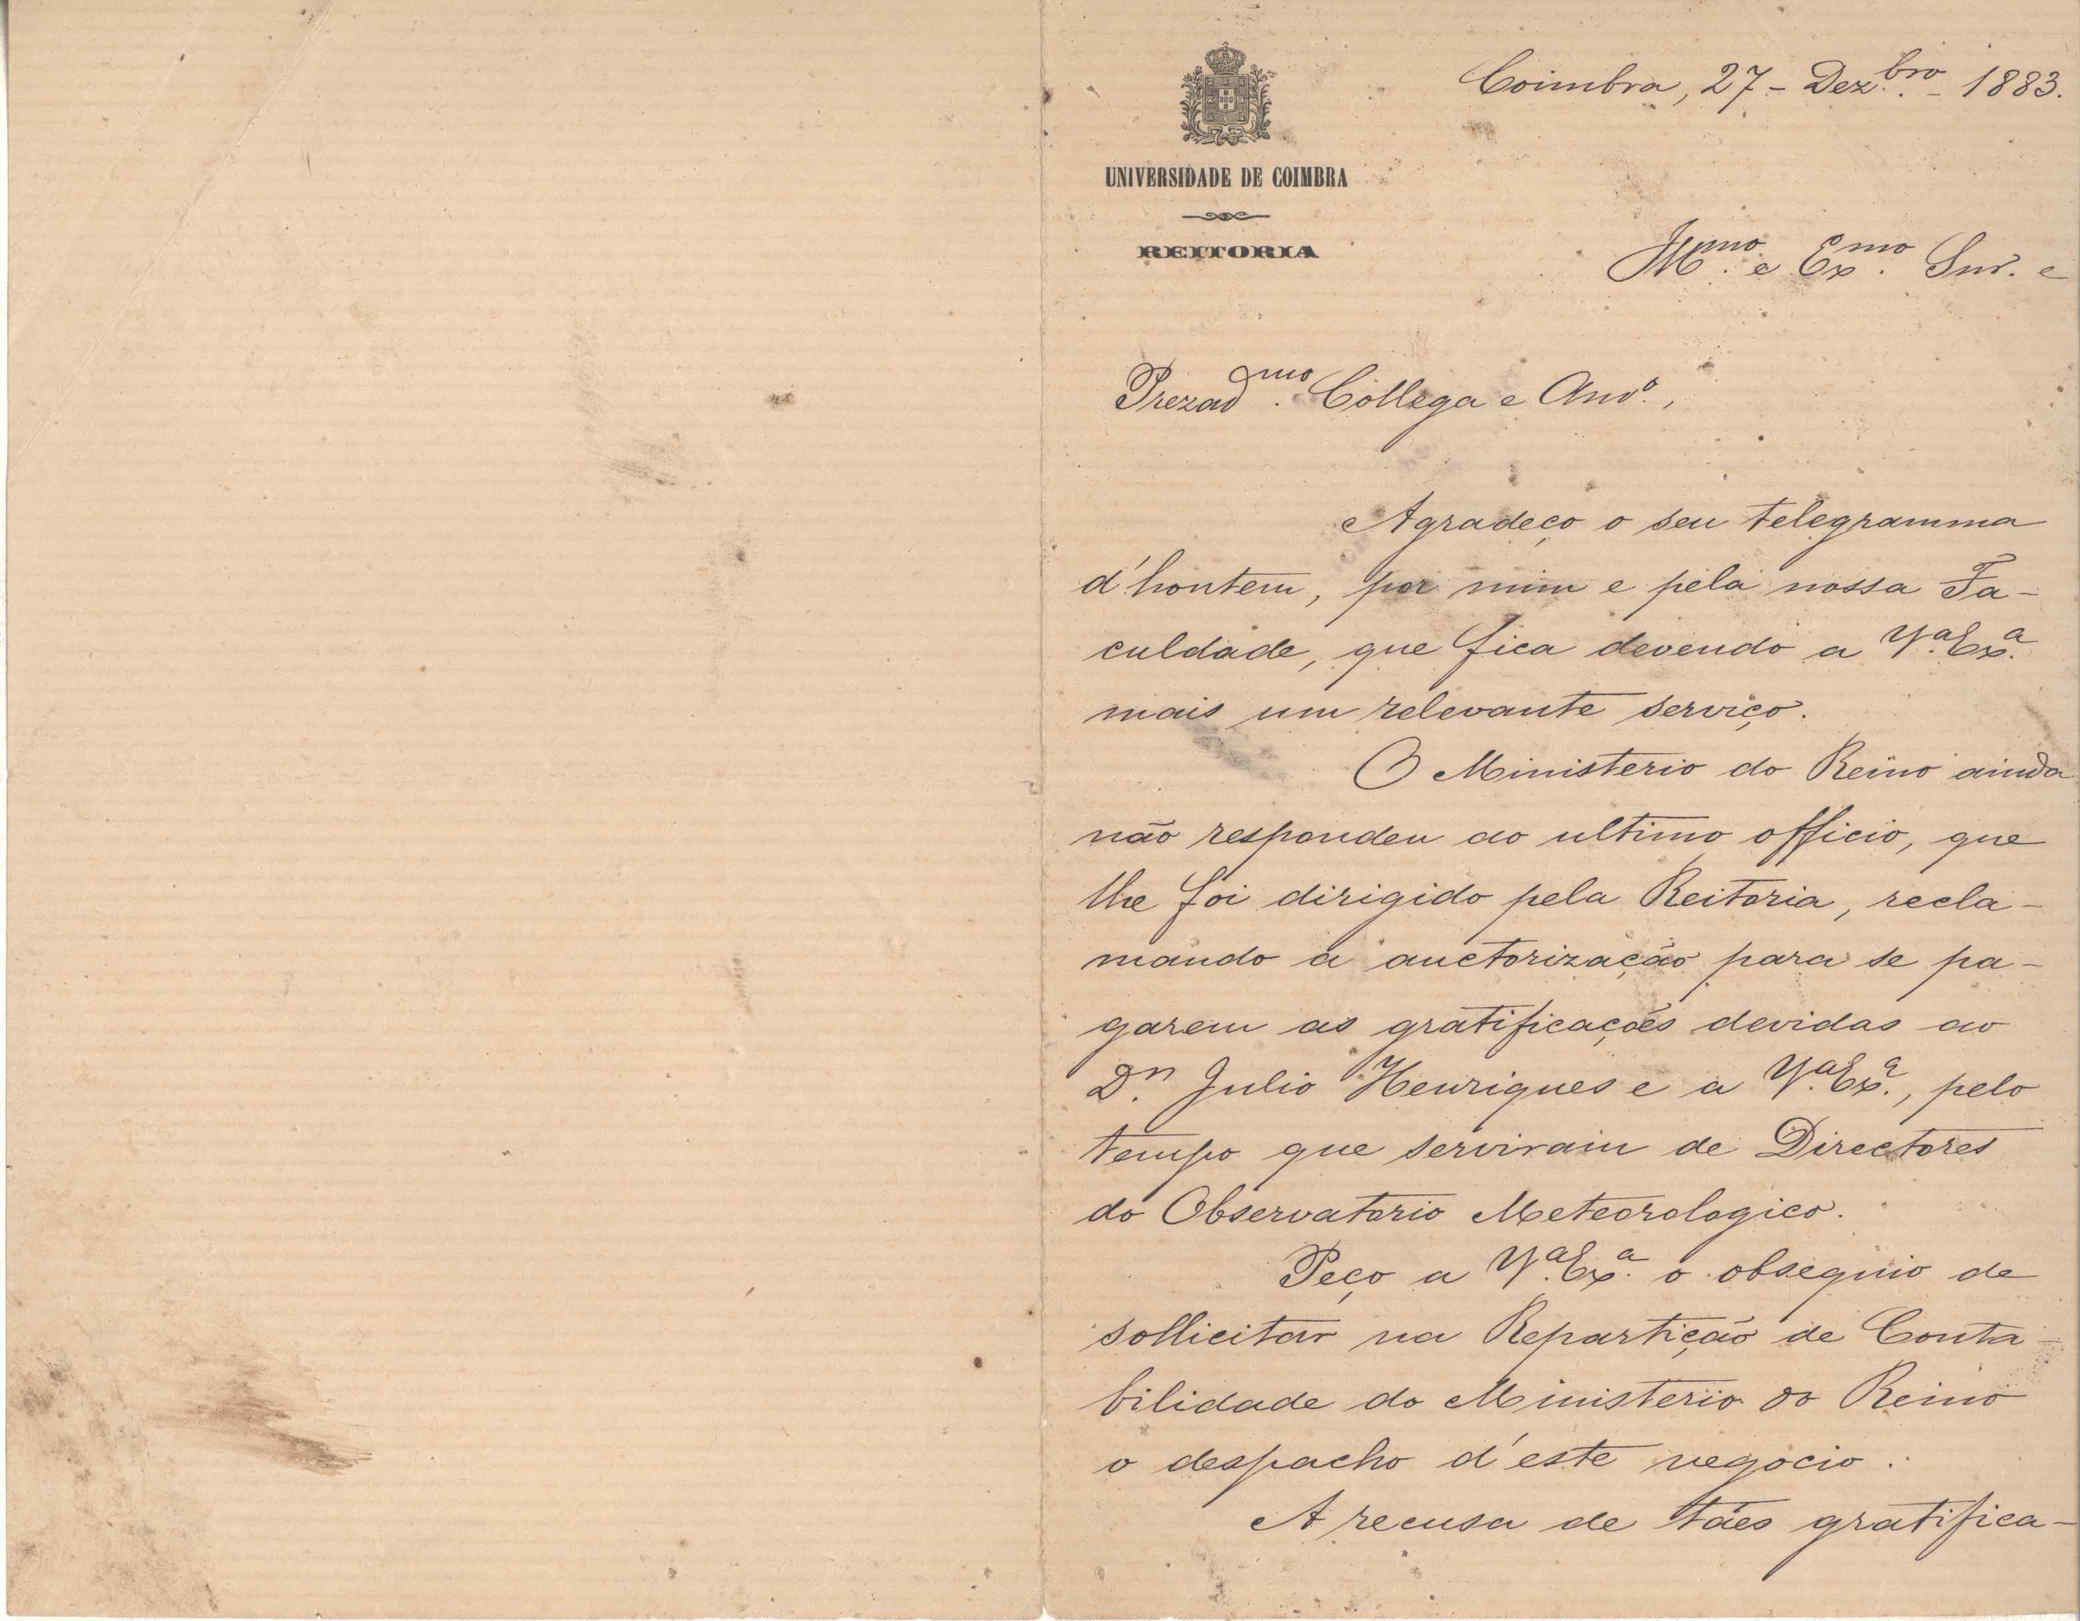 Coimbra, 27 - Dez.bro - 1883.
UNIVERSIDADE DE COIMBRA
REITORIA
Illmo. e Exmo. Snr. e
Prezadmo. Collega e Amo.,
Agradeço o seu telegramma
d'hontem, por mim e pela nossa Fa-
culdade, que fica devendo a Va. Exa.
mais um relevante serviço.
O Ministerio do Reino ainda
não respondeu ao ultimo officio, que
lhe foi dirigido pela Reitoria, recla-
mando a auctorização para se pa-
garem as gratificações devidas ao
Dr. Julio Henriques e a Va. Exa., pelo
tempo que serviram de Directores
do Observatorio Meteorologico.
Peço a Va. Exa. o obsequio de
sollicitar na Repartição de Conta-
bilidade do Ministerio do Reino
o despacho d'este negocio.
A recusa de táes gratifica-